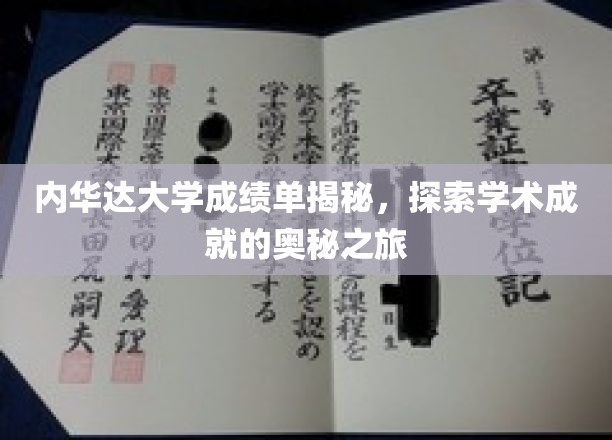 内华达大学成绩单揭秘，探索学术成
就的奥秘之旅
第 号
卒業証 学位記
本学商学部 定の課程を
日生
修めて本学 ことを認め
学士(商学)の する
平成
東京国際大学 長 田村愛理
東京国際大 長 田尻嗣夫